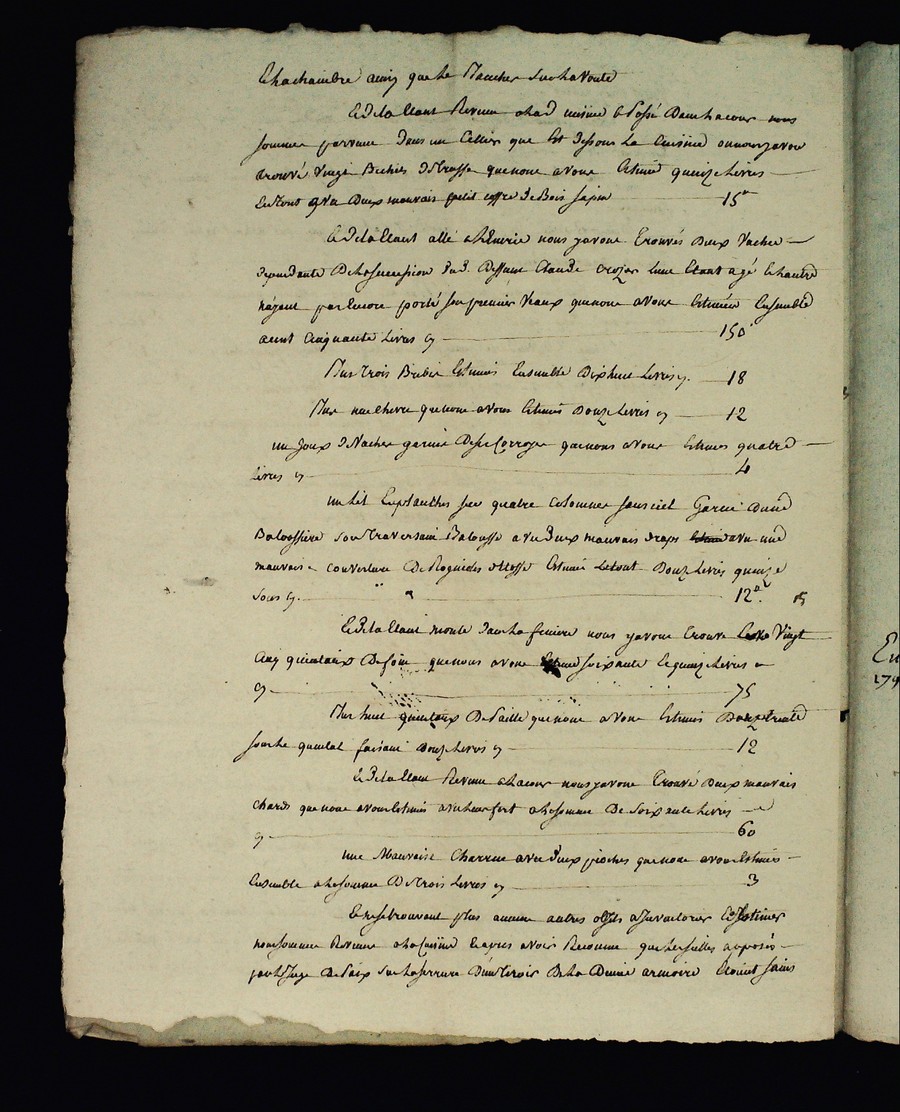 la chambre ainsy que le plancher sur la voute
Et dela Etant Revenu a lad cuisine & passé dans la cour nous
sommes parvenu dans un Cellier que Est dessous la Cuisine ou nous y avons
trouvé vingt Bichets que nous avons Estimé quinze Livres
Le tout avec deux mauvais petit coffre de Bois sapin 15
Et dela Etant allé a l'Ecurie nous y avons trouvés deux vaches
dependante De la succession dud. Deffunt Claude lune Etant agé & lautre
n'ayant pas Encore porté son premier veaux que nous avons Estimées Ensemble
a cent cinquante Livres cy 150
Plus trois Brebis Estimés Ensemble Dixhuit Livres cy. 18
Plus une chevre que nous avons Estimés Douze Livres cy 12
un Joux de vaches garnie De ses Corroyes que nous avons Estimés quatre
Livres cy 4
un Lit En planches sur quatre colonnes sans ciel Garni D'une
Balossiere son traversain Balousse avec deux mauvais draps avec une
mauvaise couverture Estimé Le tout Douze Livres quinze
sous cy. 12 15
Et dela Etant monté dans la feniere nous y avons trouvé Vingt
cinq quintaux De foin que nous avons soixante & quinze Livres
cy 75
Plus huit quintaux De paille que nous avons Estimés trente
sous le quintal faisant Douze Livres cy 12
Et dela Etant Revenu a la cour nous y avons trouvé Deux mauvais
chards que nous avons Estimés a la somme De Soixante Livres
cy 60
une Mauvaise Charrue avec deux pioches que nous avons Estimés
Ensemble a la somme De trois Livres cy 3
Et ne se trouvant plus aucune autres objets a Inventorier & Estimer
nous sommes Revenu a la Cuisine & apres avoir Reconnu que les scellés apposés
par le Juge De paix sur la serrure D'un tiroir De la Ditte armoire Etoient sains